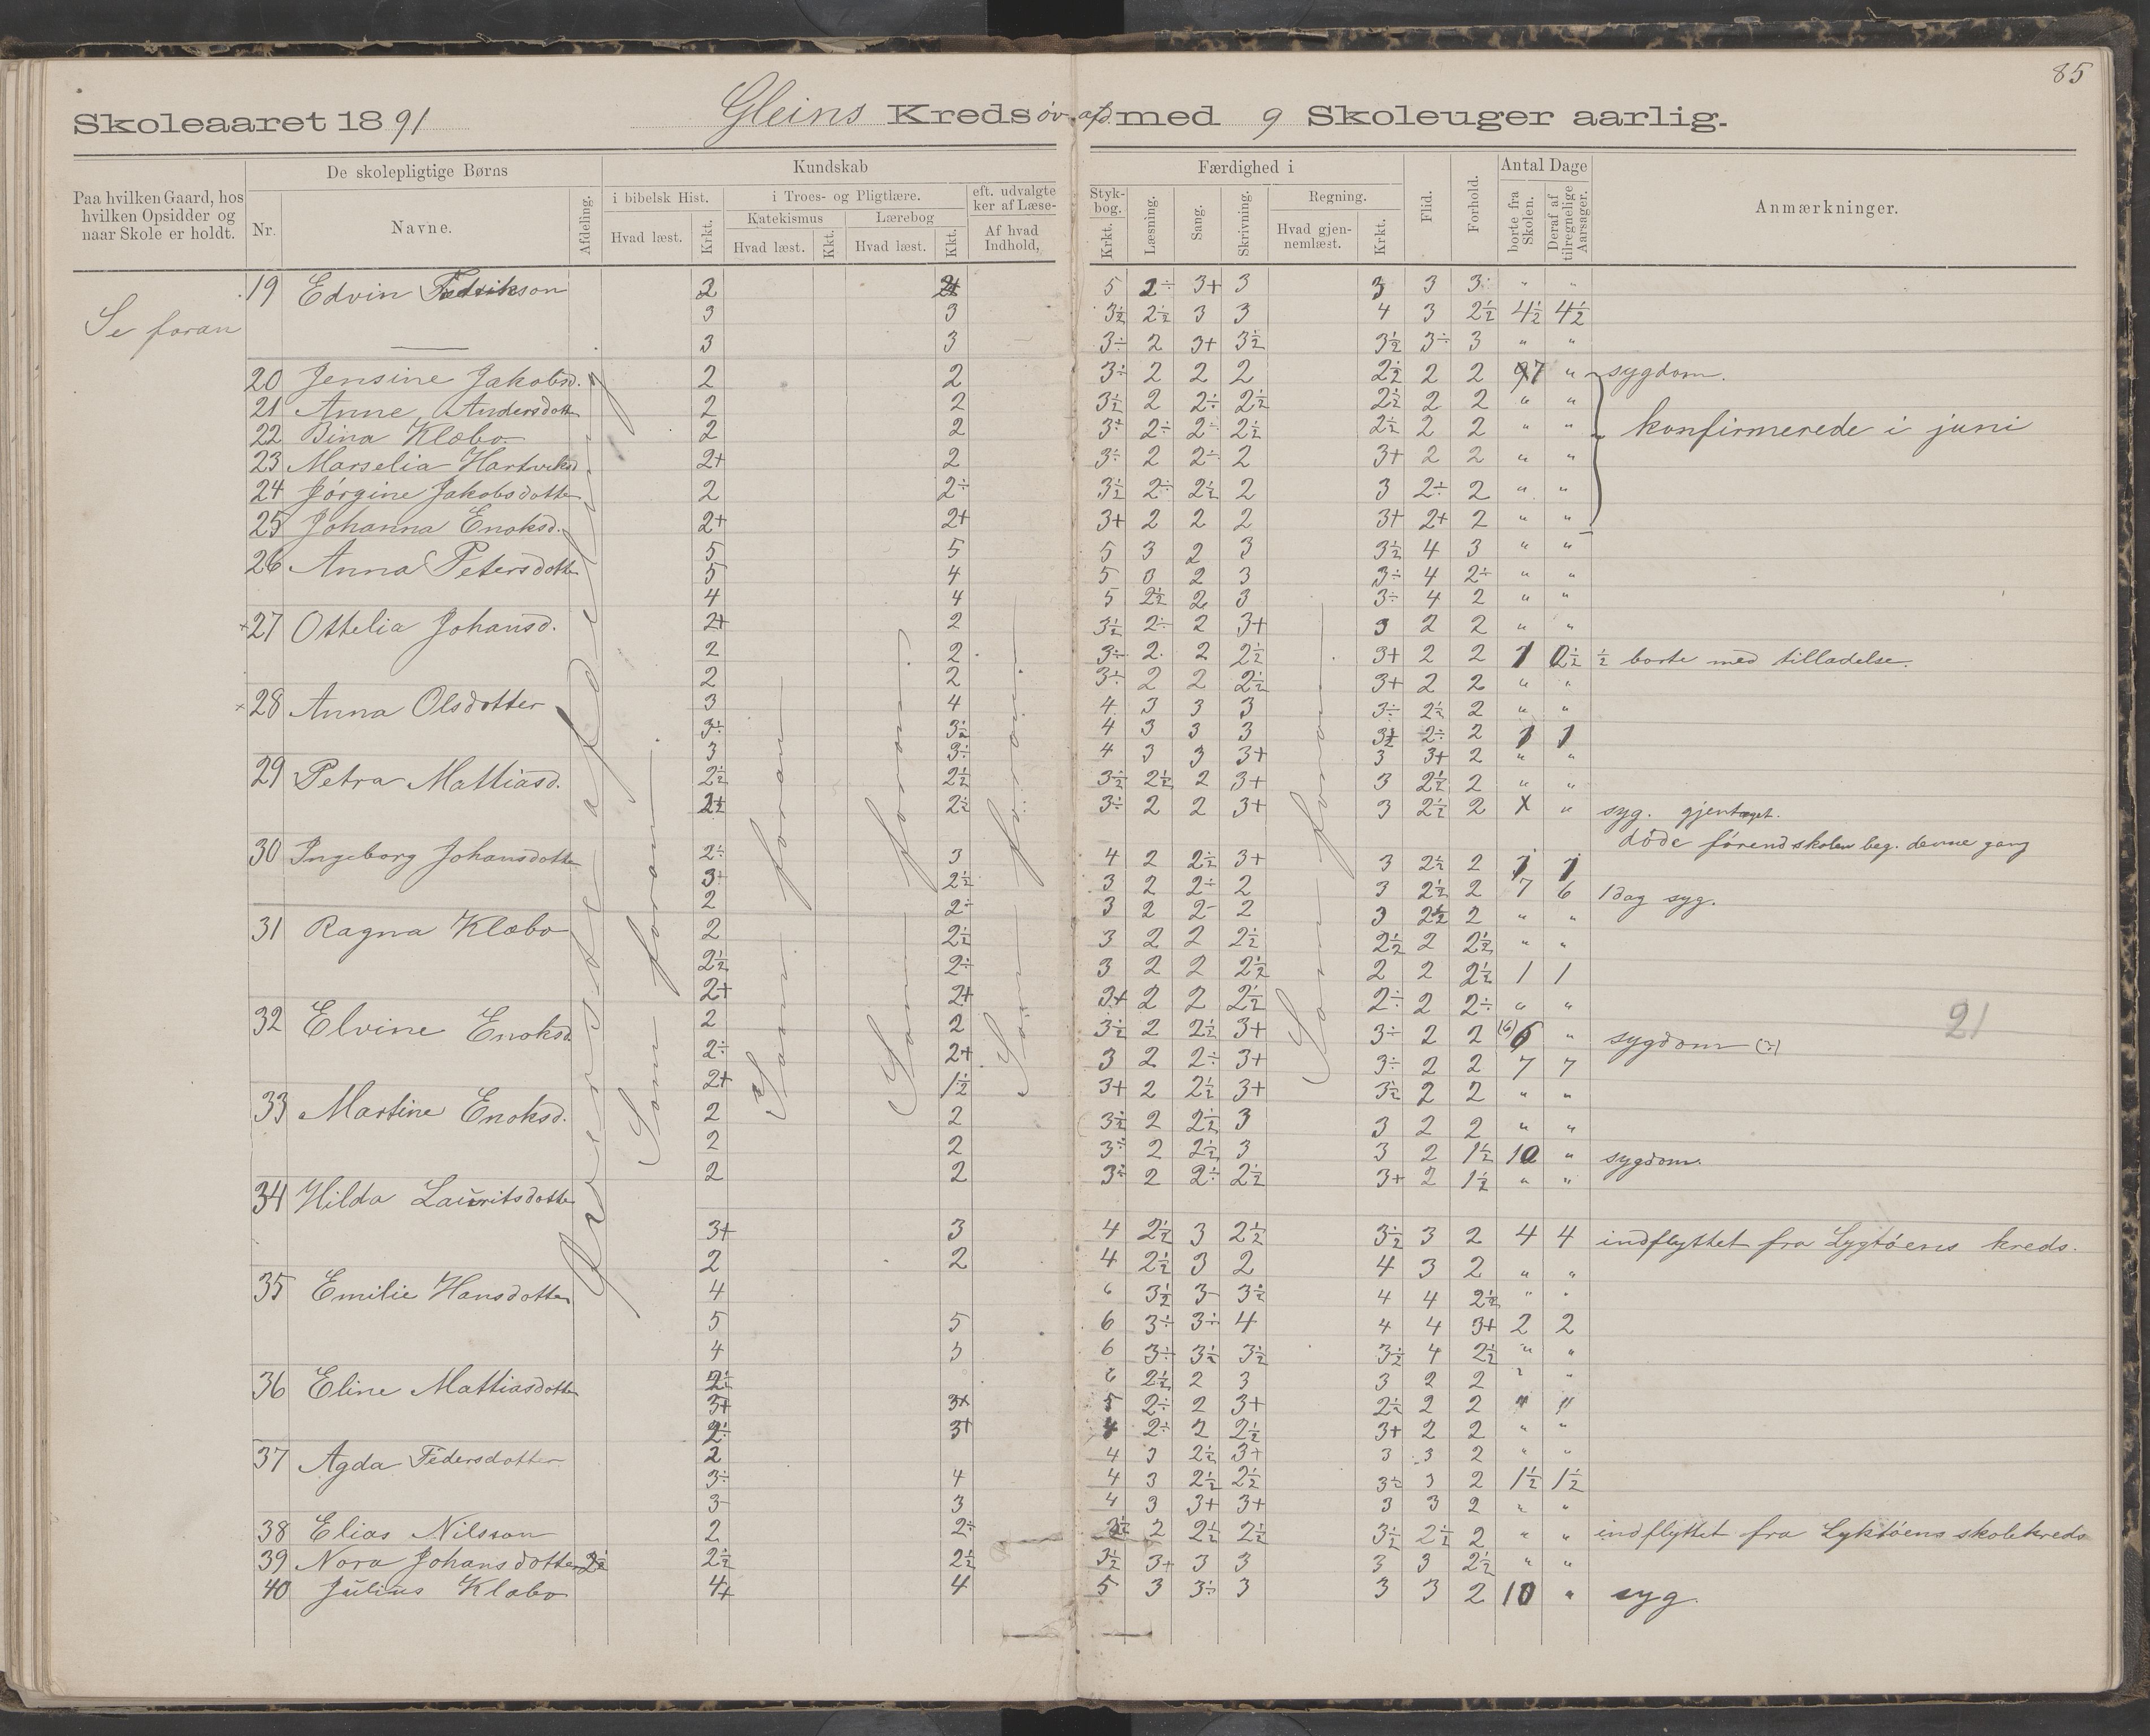 85
Skoleaaret 1891 Gleins Kreds øv. afd. med 9 Skoleuger aarlig.
Paa hvilken Gaard, hos hvilken Opsidder og naar Skole er holdt.
De skolepligtige Børns
Nr. Navne. Afdeling.
Kundskab
i bibelsk Hist. i Troes- og Pligtlære. eft. udvalgte Stykker af Læsebog.
Katekismus Lærebog
Hvad læst. Krkt. Hvad læst. Kkt. Hvad læst. Kkt. Af hvad Indhold, Krkt.
Færdighed i
Læsning. Sang. Skrivning. Regning.
Hvad gjennemlæst. Krkt.
Flid. Forhold.
Antal Dage
borte fra Skolen. Deraf af tilregnelige Aarsager.
Anmærkninger.
Se foran
Øverste afdeling
Som foran
Som foran
Som foran
Som foran
Som foran
19 Edvin Fredrikson 2 2+ 5 2÷ 3+ 3 3 3 3÷ " "
3 3 3½ 2½ 3 3 4 3 2½ 4½ 4½
3 3 3÷ 2 3+ 3½ 3½ 3÷ 3 " "
20 Jensine Jakobsd. 2 2 3÷ 2 2 2 2½ 2 2 97 " sygdom.
21 Anne Andersdotter 2 2 3½ 2 2÷ 2½ 2½ 2 2 " "
22 Bina Klæbo 2 2 3÷ 2÷ 2÷ 2½ 2½ 2 2 " " konfirmerede i juni
23 Marselia Hartviksd 2+ 2 3÷ 2 2÷ 2 3+ 2 2 " "
24 Jørgine Jakobsdotter 2 2÷ 3½ 2÷ 2½ 2 3 2÷ 2 " "
25 Johanna Enoksd. 2+ 2+ 3+ 2 2 2 3+ 2+ 2 " "
26 Anna Petersdotter 5 5 5 3 2 3 3½ 4 3 " "
5 4 5 3 2 3 3÷ 4 2÷ " "
4 4 5 2½ 2 3 3÷ 4 2 " "
27 Ottelia Johansd. 2+ 2 3½ 2÷ 2 3+ 3 2 2 " "
2 2 3÷ 2 2 2½ 3+ 2 2 1 ½ ½ borte med tilladelse.
2 2 3÷ 2 2 2½ 3+ 2 2 " "
28 Anna Olsdotter 3 4 4 3 3 3 3÷ 2½ 2 " "
3÷ 3½ 4 3 3 3 3½ 2÷ 2 1 1
3 3÷ 4 3 3 3+ 3 3+ 2 " "
29 Petra Mattiasd. 2½ 2½ 3½ 2½ 2 3+ 3 2½ 2 " "
2½ 2½ 3÷ 2 2 3+ 3 2½ 2 X " syg. gjentaget.
døde førend skolen beg. denne gang
30 Ingeborg Johansdotter 2÷ 3 4 2 2½ 3+ 3 2½ 2 1 1
3+ 2½ 3 2 2÷ 2 3 2½ 2 7 6 1 dag syg.
2 2÷ 3 2 2- 2 3 2½ 2 " "
31 Ragna Klæbo 2 2½ 3 2 2 2½ 2½ 2 2½ " "
2½ 2÷ 3 2 2 2½ 2 2 2½ 1 1
2+ 2+ 3+ 2 2 2½ 2÷ 2 2÷ " "
32 Elvine Enoksd. 2 2 3½ 2 2½ 3+ 3÷ 2 2 (6) 6 " sygdom (?) 21
2÷ 2+ 3 2 2÷ 3+ 3÷ 2 2 7 7
2+ 1½ 3+ 2 2½ 3+ 3½ 2 2 " "
33 Martine Enoksd. 2 2 3½ 2 2½ 3 3 2 2 " "
2 2 3÷ 2 2½ 3 3 2 1½ 10 " sygdom.
2 2 3÷ 2 2÷ 2½ 3+ 2 1½ " "
34 Hilda Lauritsdotter
3+ 3 4 2½ 3 2½ 3½ 3 2 4 4 indflyttet fra Lygtøens kreds.
2 2 4 2½ 3 2 4 3 2 " "
35 Emilie Hansdotter 4 6 3½ 3 3½ 4 4 2½ " "
5 5 6 3÷ 3÷ 4 4 4 3+ 2 2
4 3 6 3÷ 3½ 3½ 3½ 4 2½ " "
36 Eline Mattiasdotter 2½ 6 2½ 2 3 3 2 2 " "
3+ 3+ 5 2÷ 2 3+ 2½ 2 2 " "
2÷ 3+ 4 2÷ 2 2½ 3+ 2 2 " "
37 Agda Pedersdotter 2 4 3 2½ 3+ 3 3 2 " "
3÷ 4 4 3 2½ 2½ 3½ 3 2 1½ 1½
3 3 4 3 3+ 3+ 3 3 2 " "
38 Elias Nilsson 2 2÷ 3½ 2 2½ 2½ 3½ 2½ 2 " " indflyttet fra Lyktøens skolekreds
39 Nora Johansdotter 2½ 2½ 2½ 3½ 3+ 3 3 3 3 2½ " "
40 Julius Klæbo 4+ 4 5 3 3÷ 3 3 3 2 10 " syg.